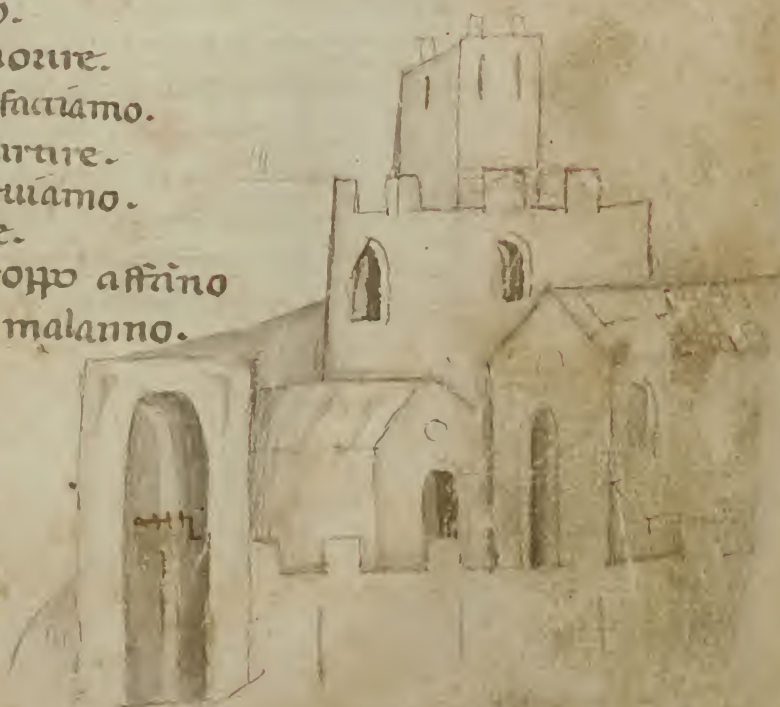 o.
morire.
facciamo.
artire.
uiamo.
e.
oppo affãno
malanno.